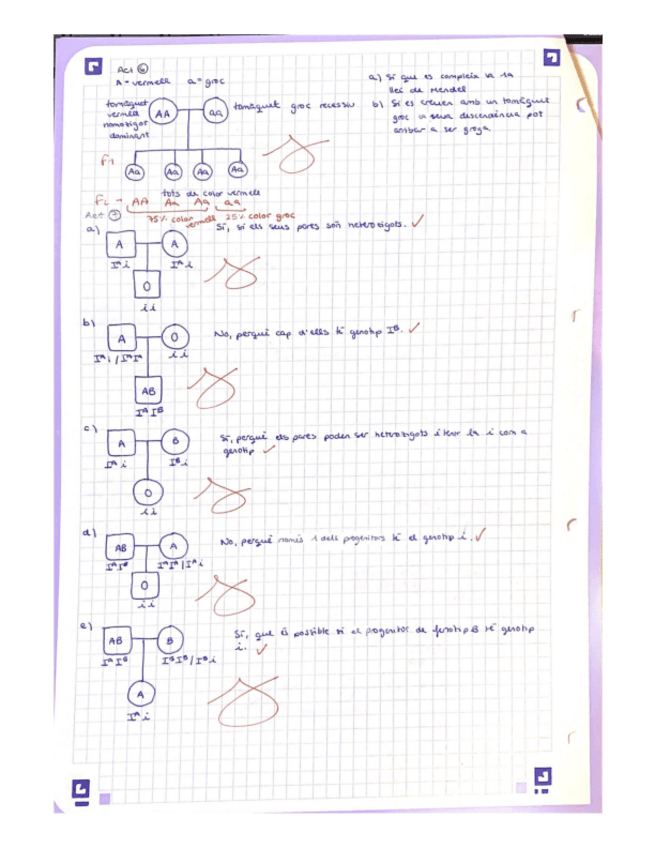 Act ⑥
A = vermell   a = groc
tomàquet vermell homozigot dominant
AA
aa
tomàquet groc recessiu
F1
Aa Aa Aa Aa
tots de color vermell
F2 → AA Aa Aa aa
75% color vermell 25% color groc
a) Sí que es compleix la 1a
llei de Mendel
b) Si es creuen amb un tomàquet
groc la seva descendència pot
arribar a ser groga.
Act ⑦
a)
A A
Iᴬi Iᴬi
O
ii
Sí, si els seus pares són heterozigots. ✓
b)
A O
Iᴬi / IᴬIᴬ ii
AB
IᴬIᴮ
No, perquè cap d'ells té genotip Iᴮ. ✓
c)
A B
Iᴬi Iᴮi
O
ii
Sí, perquè els pares poden ser heterozigots i tenir la i com a
genotip ✓
d)
AB A
IᴬIᴮ IᴬIᴬ / Iᴬi
O
ii
No, perquè només 1 dels progenitors té el genotip i. ✓
e)
AB B
IᴬIᴮ IᴮIᴮ / Iᴮi
A
Iᴬi
Sí, que és possible si el progenitor de fenotip B té genotip
i. ✓